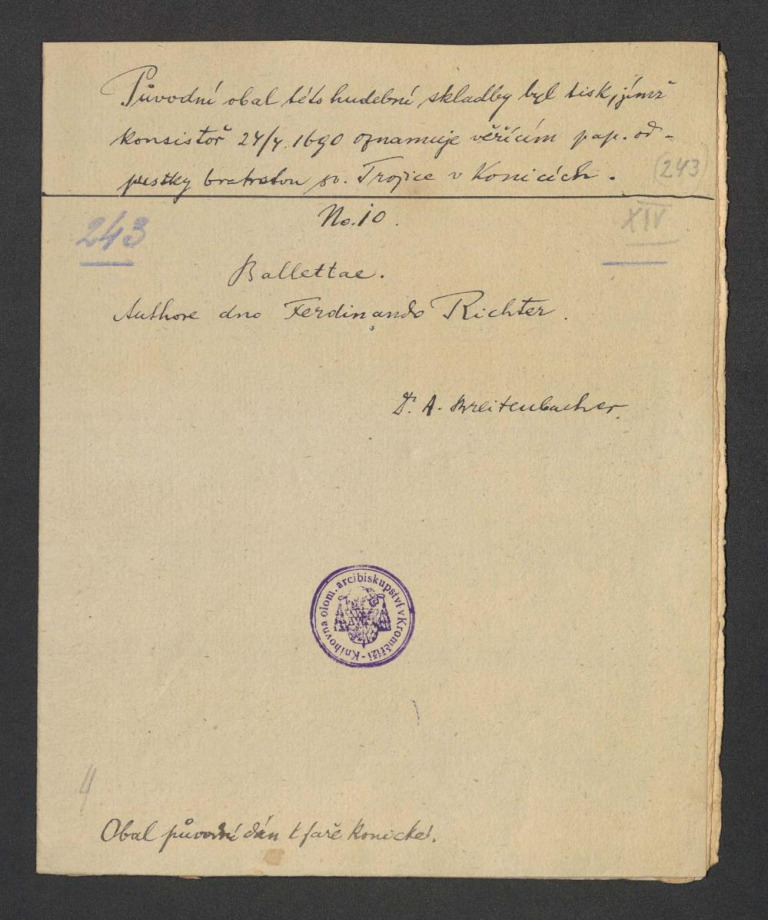 Původní obal této hudební skladby byl tisk, jímž
konsistoř 24/4. 1690 oznamuje věřícím pap. od-
pustky bratrstva sv. Trojice v Konicích.
(243)
No. 10.
243
XIV
Ballettae.
Authore dno Ferdinando Richter.
Dr A. Breitenbacher.
Knihovna olom. arcibiskupství v Kroměříži -
Obal původní dán k faře konické.